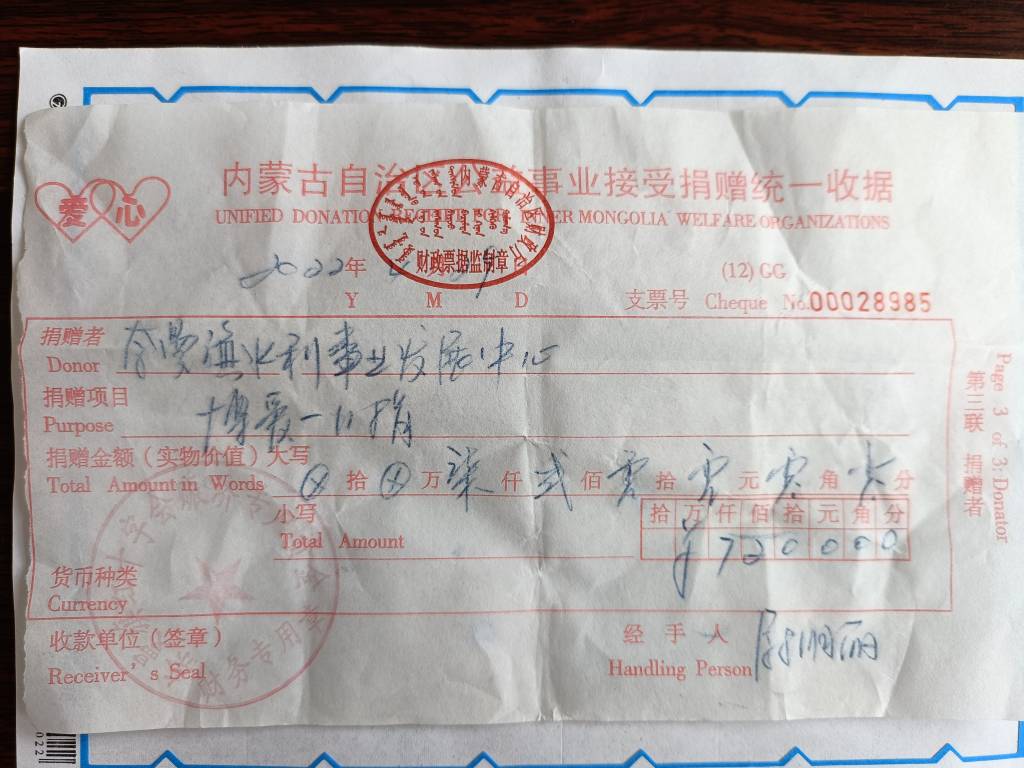 爱心
内蒙古自治区 事业接受捐赠统一收据
UNIFIED DONATION RECEIPT FOR INNER MONGOLIA WELFARE ORGANIZATIONS
内蒙古自治区财政厅
财政票据监制章
2022年 月 29
Y M D
(12) GG
支票号 Cheque No.00028985
捐赠者
Donor
水利事业发展中心
捐赠项目
Purpose
博爱一日捐
捐赠金额(实物价值)大写
Total Amount in Words
⊗ 拾 ⊗ 万 柒 仟 贰 佰 零 拾 零 元 零 角 零 分
小写
Total Amount
拾 万 仟 佰 拾 元 角 分
¥ 7 2 0 0 0 0
货币种类
Currency
收款单位(签章)
Receiver's Seal
财务专用章
经手人
Handling Person
第三联 捐赠者
Page 3 of 3:Donator
022